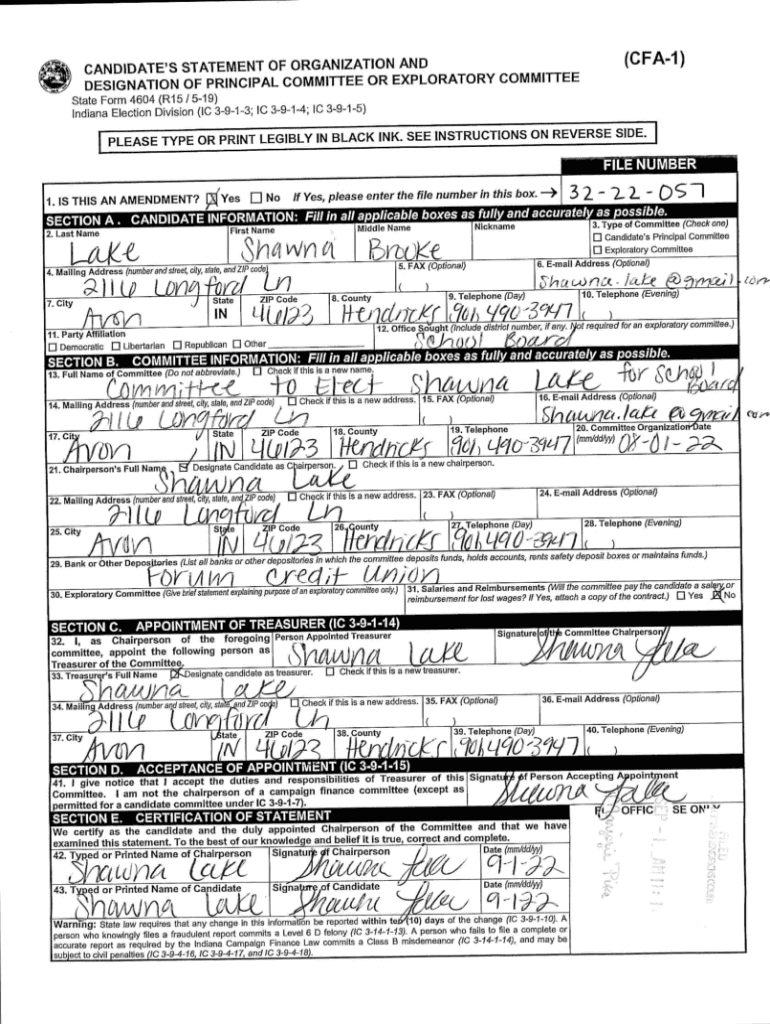 (CFA-1)
CANDIDATE'S STATEMENT OF ORGANIZATION AND
DESIGNATION OF PRINCIPAL COMMITTEE OR EXPLORATORY COMMITTEE
State Form 4604 (R15 / 5-19)
Indiana Election Division (IC 3-9-1-3; IC 3-9-1-4; IC 3-9-1-5)
PLEASE TYPE OR PRINT LEGIBLY IN BLACK INK. SEE INSTRUCTIONS ON REVERSE SIDE.
FILE NUMBER
1. IS THIS AN AMENDMENT? ☒ Yes ☐ No If Yes, please enter the file number in this box. → 32-22-057
SECTION A. CANDIDATE INFORMATION: Fill in all applicable boxes as fully and accurately as possible.
2. Last Name First Name Middle Name Nickname 3. Type of Committee (Check one)
Lake Shawna Brooke
☐ Candidate's Principal Committee
☐ Exploratory Committee
4. Mailing Address (number and street, city, state, and ZIP code) 5. FAX (Optional) 6. E-mail Address (Optional)
2116 Longford Ln ( ) Shawna.lake@gmail.com
7. City State ZIP Code 8. County 9. Telephone (Day) 10. Telephone (Evening)
Avon IN 46123 Hendricks (901) 490-3947 ( )
11. Party Affiliation 12. Office Sought (Include district number, if any. Not required for an exploratory committee.)
☐ Democratic ☐ Libertarian ☐ Republican ☐ Other School Board
SECTION B. COMMITTEE INFORMATION: Fill in all applicable boxes as fully and accurately as possible.
13. Full Name of Committee (Do not abbreviate.) ☐ Check if this is a new name.
Committee to Elect Shawna Lake for School Board
14. Mailing Address (number and street, city, state, and ZIP code) ☐ Check if this is a new address. 15. FAX (Optional) 16. E-mail Address (Optional)
2116 Longford Ln ( ) Shawna.lake@gmail.com
17. City State ZIP Code 18. County 19. Telephone 20. Committee Organization Date
Avon IN 46123 Hendricks (901) 490-3947 (mm/dd/yy) 08-01-22
21. Chairperson's Full Name ☒ Designate Candidate as Chairperson. ☐ Check if this is a new chairperson.
Shawna Lake
22. Mailing Address (number and street, city, state, and ZIP code) ☐ Check if this is a new address. 23. FAX (Optional) 24. E-mail Address (Optional)
2116 Longford Ln ( )
25. City State ZIP Code 26. County 27. Telephone (Day) 28. Telephone (Evening)
Avon IN 46123 Hendricks (901) 490-3947 ( )
29. Bank or Other Depositories (List all banks or other depositories in which the committee deposits funds, holds accounts, rents safety deposit boxes or maintains funds.)
Forum Credit Union
30. Exploratory Committee (Give brief statement explaining purpose of an exploratory committee only.) 31. Salaries and Reimbursements (Will the committee pay the candidate a salary or
reimbursement for lost wages? If Yes, attach a copy of the contract.) ☐ Yes ☒ No
SECTION C. APPOINTMENT OF TREASURER (IC 3-9-1-14)
32. I, as Chairperson of the foregoing Person Appointed Treasurer Signature of the Committee Chairperson
committee, appoint the following person as Shawna Lake Shawna Lake
Treasurer of the Committee.
33. Treasurer's Full Name ☒ Designate candidate as treasurer. ☐ Check if this is a new treasurer.
Shawna Lake
34. Mailing Address (number and street, city, state, and ZIP code) ☐ Check if this is a new address. 35. FAX (Optional) 36. E-mail Address (Optional)
2116 Longford Ln ( )
37. City State ZIP Code 38. County 39. Telephone (Day) 40. Telephone (Evening)
Avon IN 46123 Hendricks (901) 490-3947 ( )
SECTION D. ACCEPTANCE OF APPOINTMENT (IC 3-9-1-15)
41. I give notice that I accept the duties and responsibilities of Treasurer of this Signature of Person Accepting Appointment
Committee. I am not the chairperson of a campaign finance committee (except as Shawna Lake
permitted for a candidate committee under IC 3-9-1-7).
SECTION E. CERTIFICATION OF STATEMENT
We certify as the candidate and the duly appointed Chairperson of the Committee and that we have
examined this statement. To the best of our knowledge and belief it is true, correct and complete.
42. Typed or Printed Name of Chairperson Signature of Chairperson Date (mm/dd/yy)
Shawna Lake Shawna Lake 9-1-22
43. Typed or Printed Name of Candidate Signature of Candidate Date (mm/dd/yy)
Shawna Lake Shawna Lake 9-1-22
Warning: State law requires that any change in this information be reported within ten (10) days of the change (IC 3-9-1-10). A
person who knowingly files a fraudulent report commits a Level 6 D felony (IC 3-14-1-13). A person who fails to file a complete or
accurate report as required by the Indiana Campaign Finance Law commits a Class B misdemeanor (IC 3-14-1-14), and may be
subject to civil penalties (IC 3-9-4-16, IC 3-9-4-17, and IC 3-9-4-18).
FILED